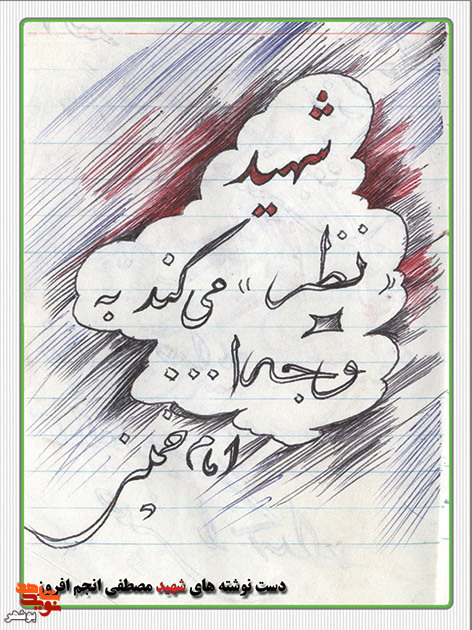 شهید
« نظر » می کند به
وجه ا...
امام خمینی
دست نوشته های شهید مصطفی انجم افروز
نوید شاهد
بوشهر